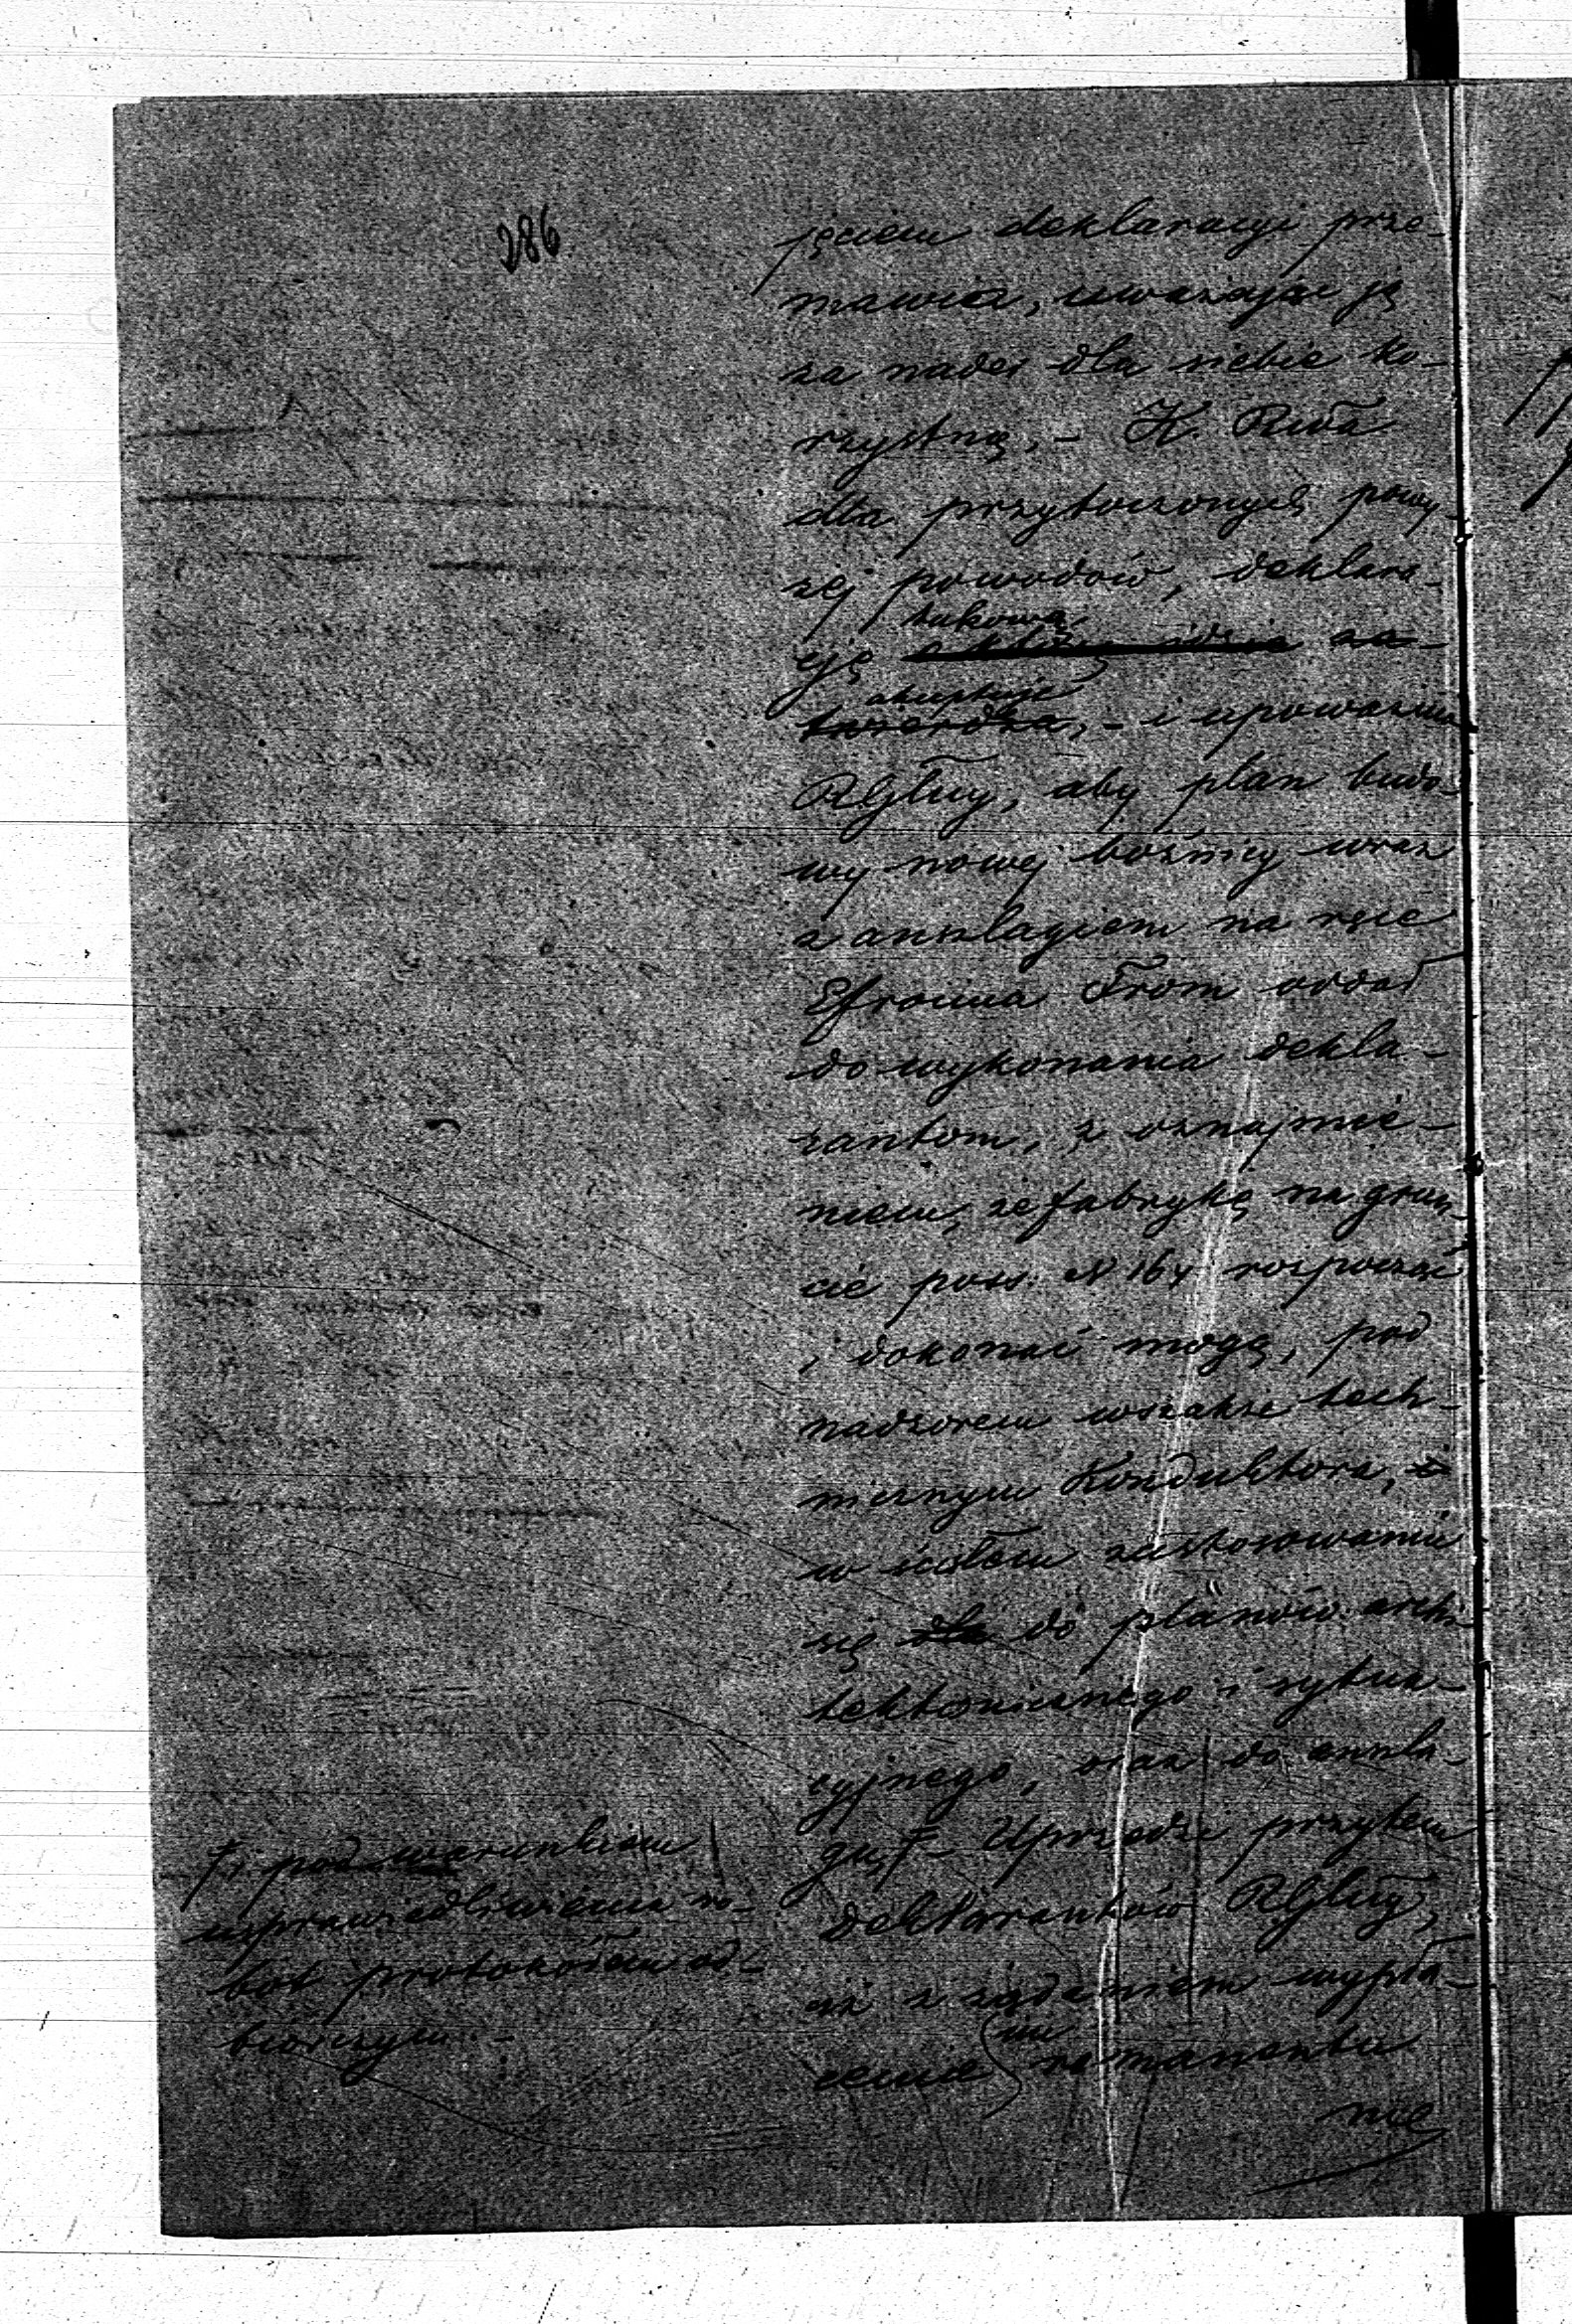 286
jęciem deklaracyi prze-
mawia, uważając ją
za nader dla siebie ko-
rzystną, - K. Rwa
dla przytoczonych powy-
żej powodów, deklara-
takową
cję
akceptuje
twierdza, - i upoważnia
aby plan budo-
wy nowej bożnicy wraz
z anszlagiem na ręce
Efroima From oddał
do wykonania dekla-
rantom, z oznajmie-
niem, że fabrykę na grun-
cie poss. N 164 rozpocząć
i dokonać mogą, pod
nadzorem wszakże tech-
nicznym Konduktora,
w ścisłem zastosowaniu
się do planów archi-
tektonicznego i sytua-
cyjnego, oraz do anszla-
gu, F - Uprzedzi przytem
deklarantów
że z żądaniem wypła-
cenia im remanentu
nie
F, pod warunkiem
usprawiedliwienia ro-
bót protokółem od-
biorczym. -